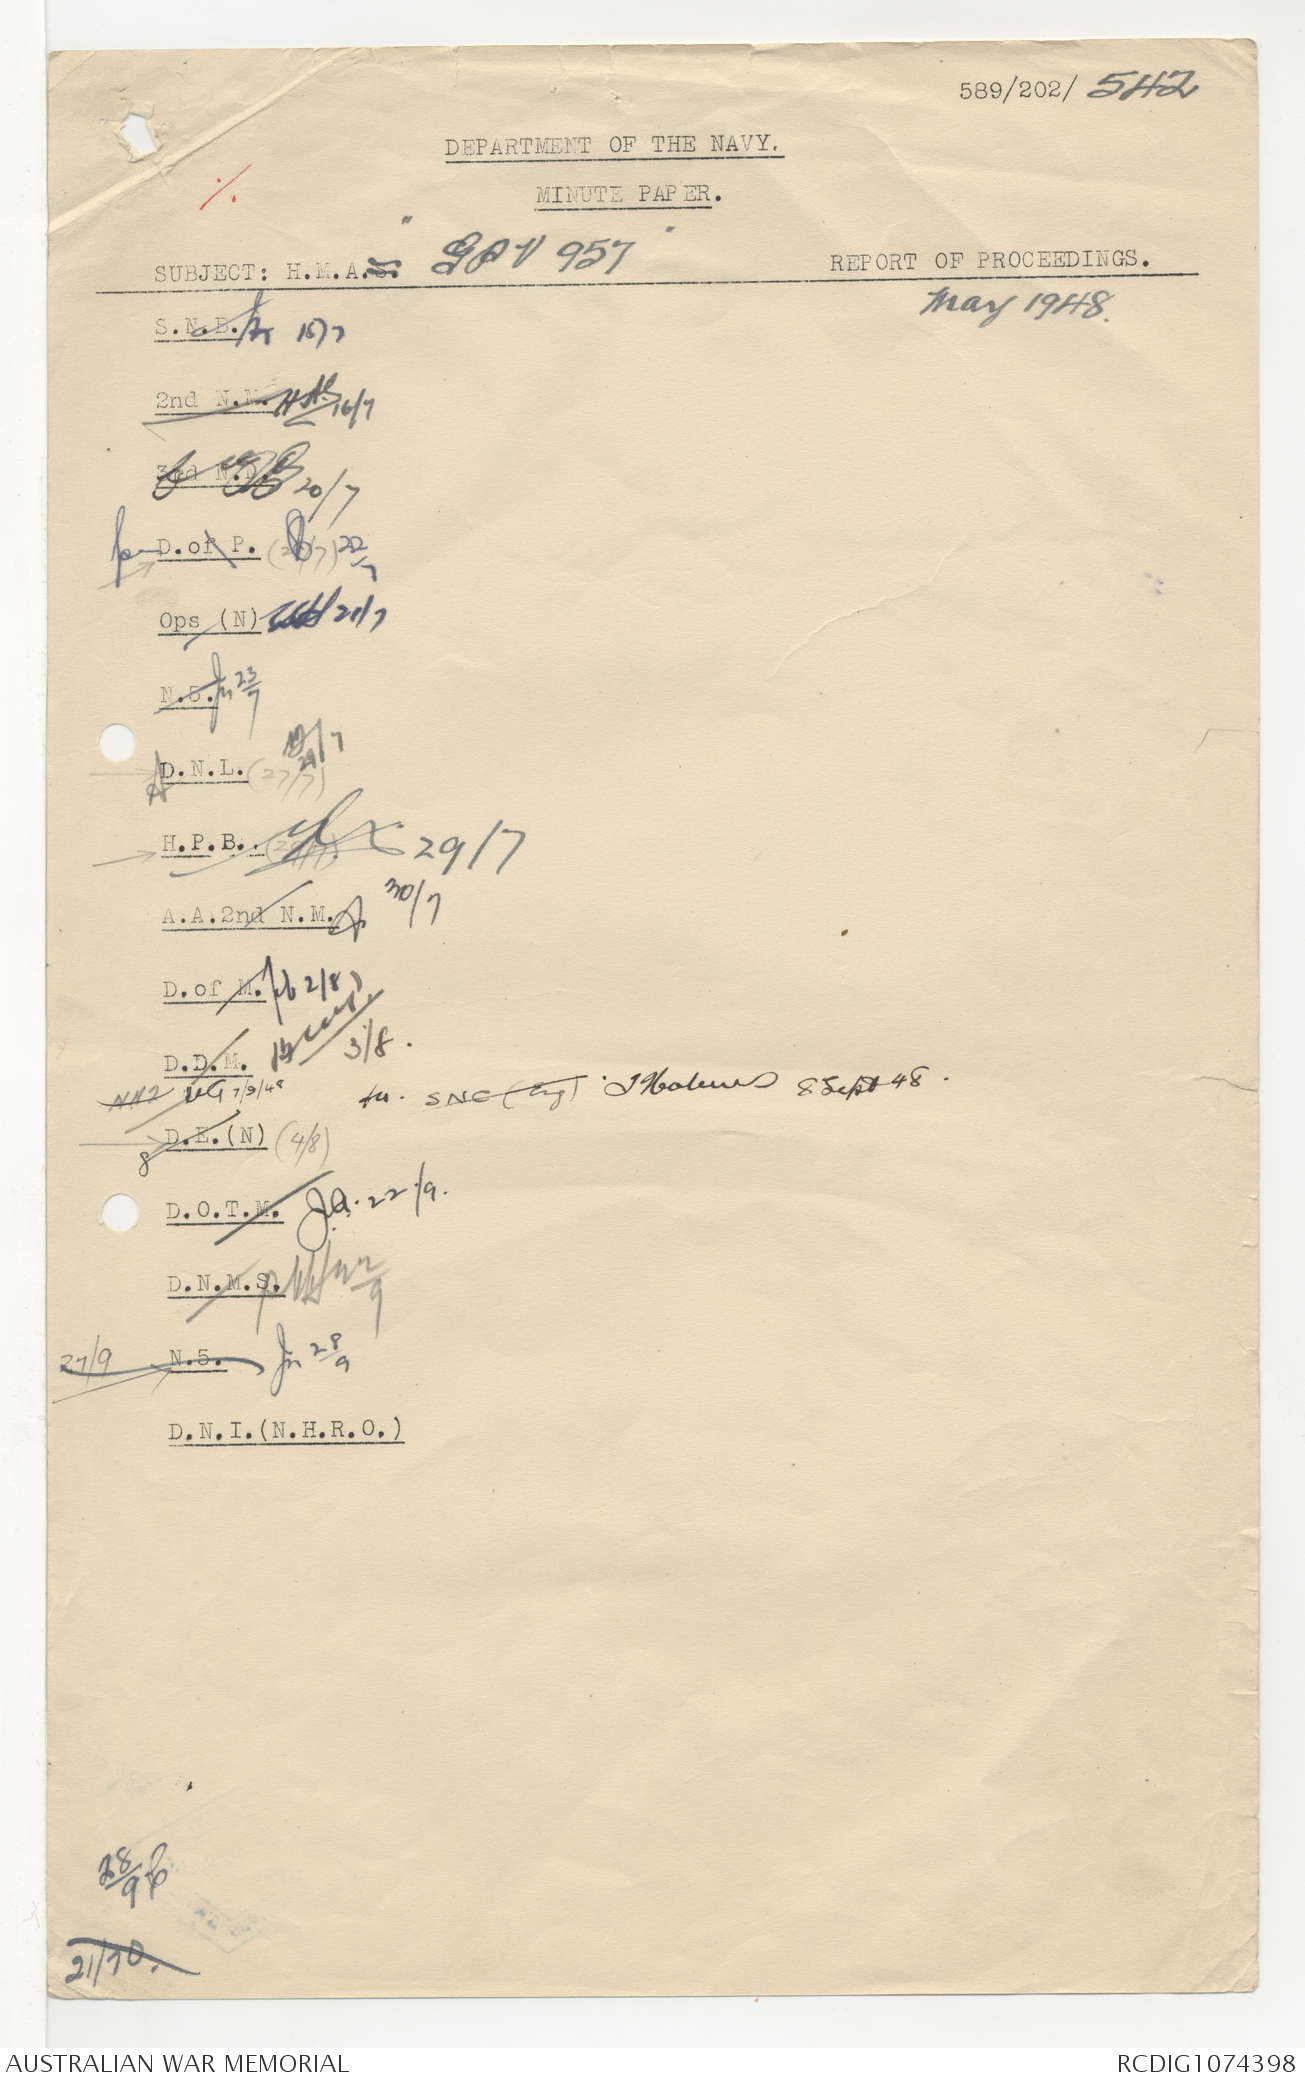 589/202/542
DEPARTMENT OF THE NAVY.
MINUTE PAPER.
SUBJECT: H.M.A.S. "GPV 957" REPORT OF PROCEEDINGS.
May 1948.
S.N.B. 16/7
2nd N.M. 16/7
3rd N.D. 20/7
D.of P. 22/7
Ops (N) 21/7
N.5. 23/7
D.N.L. (27/7) 29/7
H.P.B. 29/7
A.A.2nd N.M. 30/7
D.of M. 2/8
D.D.M. 3/8.
7/9/48
SNC 8 Sept 48.
D.E.(N) (4/8)
D.O.T.M. 22/9.
D.N.M.S. 22/9
27/9 N.5. 28/9
D.N.I.(N.H.R.O.)
28/9
21/10.
AUSTRALIAN WAR MEMORIAL RCDIG1074398